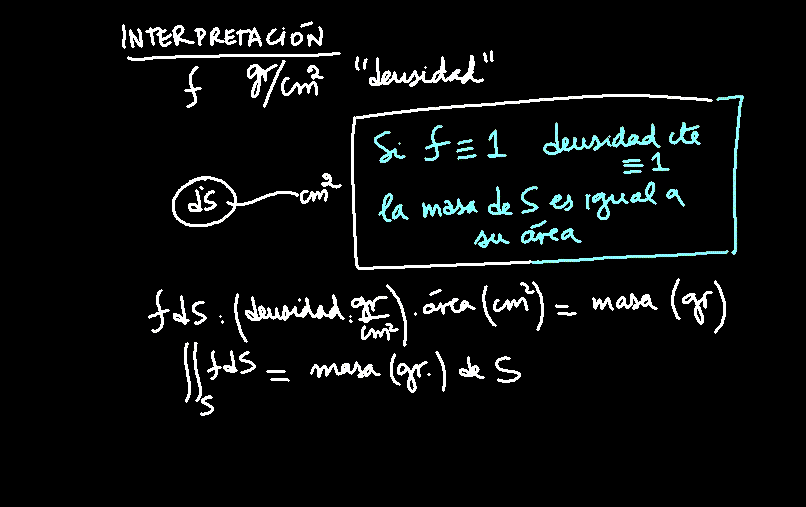 INTERPRETACIÓN
f gr/cm² "densidad"
Si f ≡ 1 densidad cte
≡ 1
dS cm²
la masa de S es igual a
su área
f dS : (densidad : gr/cm²) · área (cm²) = masa (gr)
∬_S f dS = masa (gr.) de S